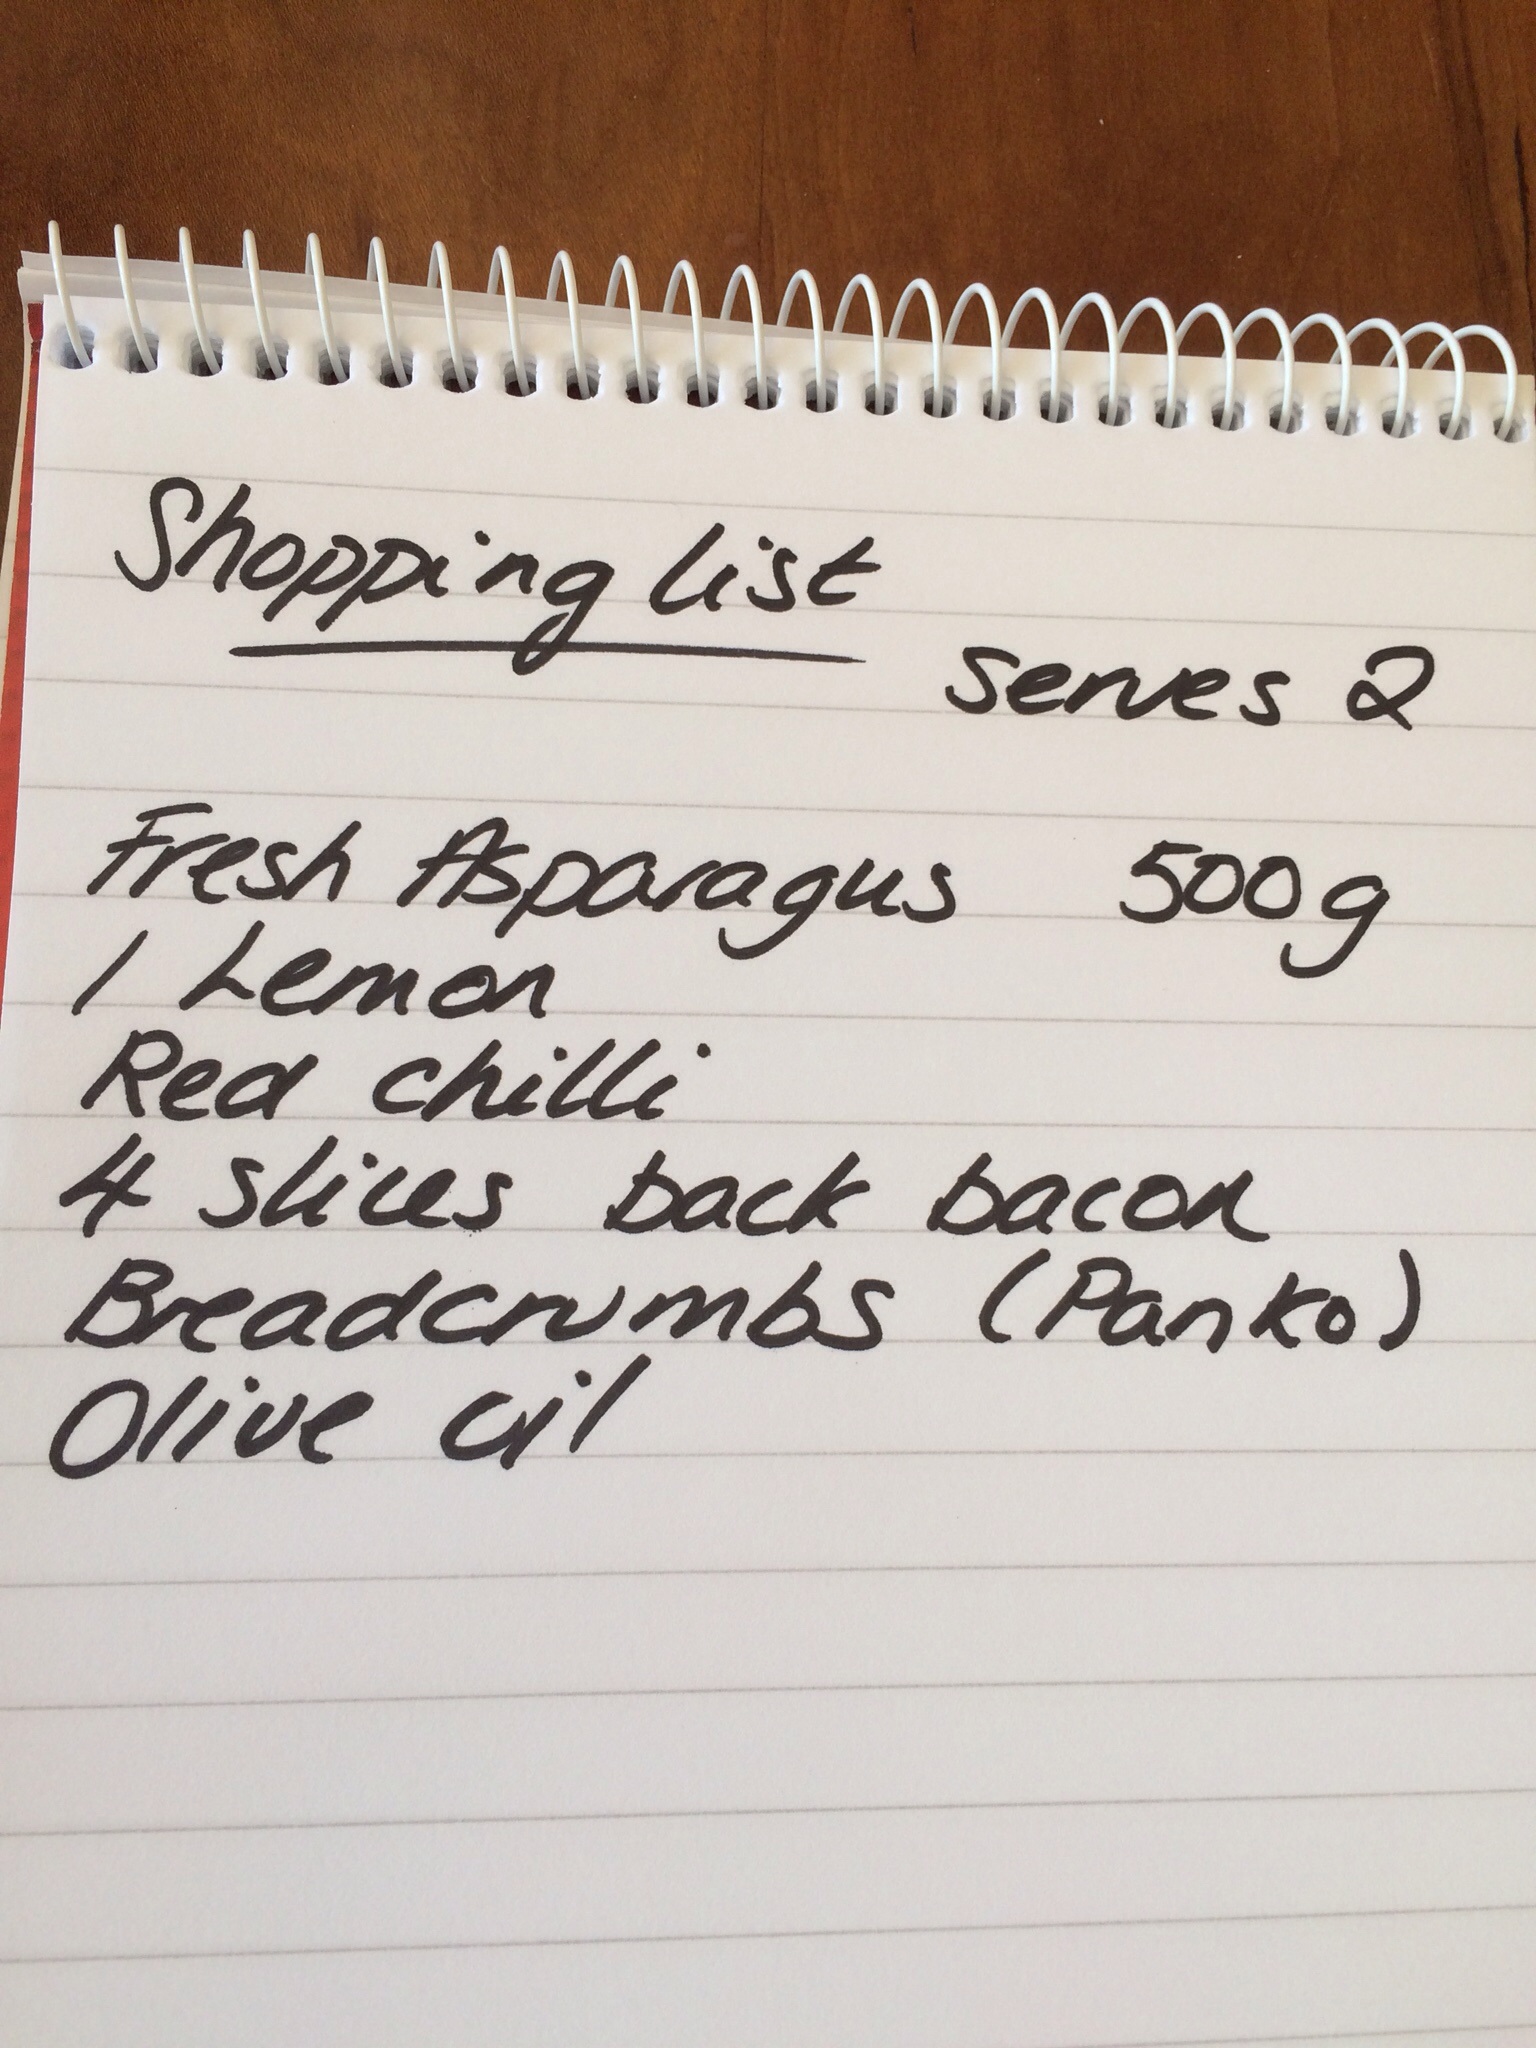 Shopping list
serves 2
Fresh Asparagus 500g
1 Lemon
Red chilli
4 slices back bacon
Breadcrumbs (Panko)
Olive oil